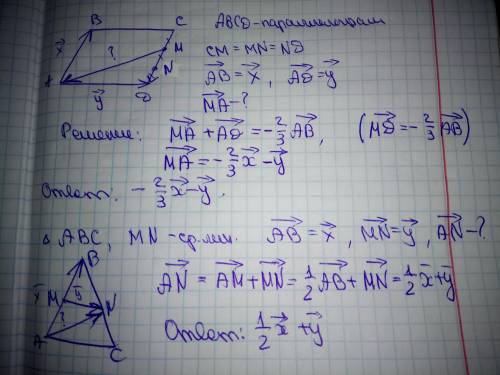 B C ABCD - параллелограм
x⃗ ? M CM = MN = ND
N AB⃗ = x⃗, AD⃗ = y⃗
A y⃗ D MA⃗ - ?
Решение: MA⃗ + AD⃗ = -2/3 AB⃗, (MD⃗ = -2/3 AB⃗)
MA⃗ = -2/3 x⃗ - y⃗
Ответ: -2/3 x⃗ - y⃗.
△ ABC, MN - ср. лин. AB⃗ = x⃗, MN⃗ = y⃗, AN⃗ - ?
B
x⃗ M y⃗ N AN⃗ = AM⃗ + MN⃗ = 1/2 AB⃗ + MN⃗ = 1/2 x⃗ + y⃗
?
A C Ответ: 1/2 x⃗ + y⃗